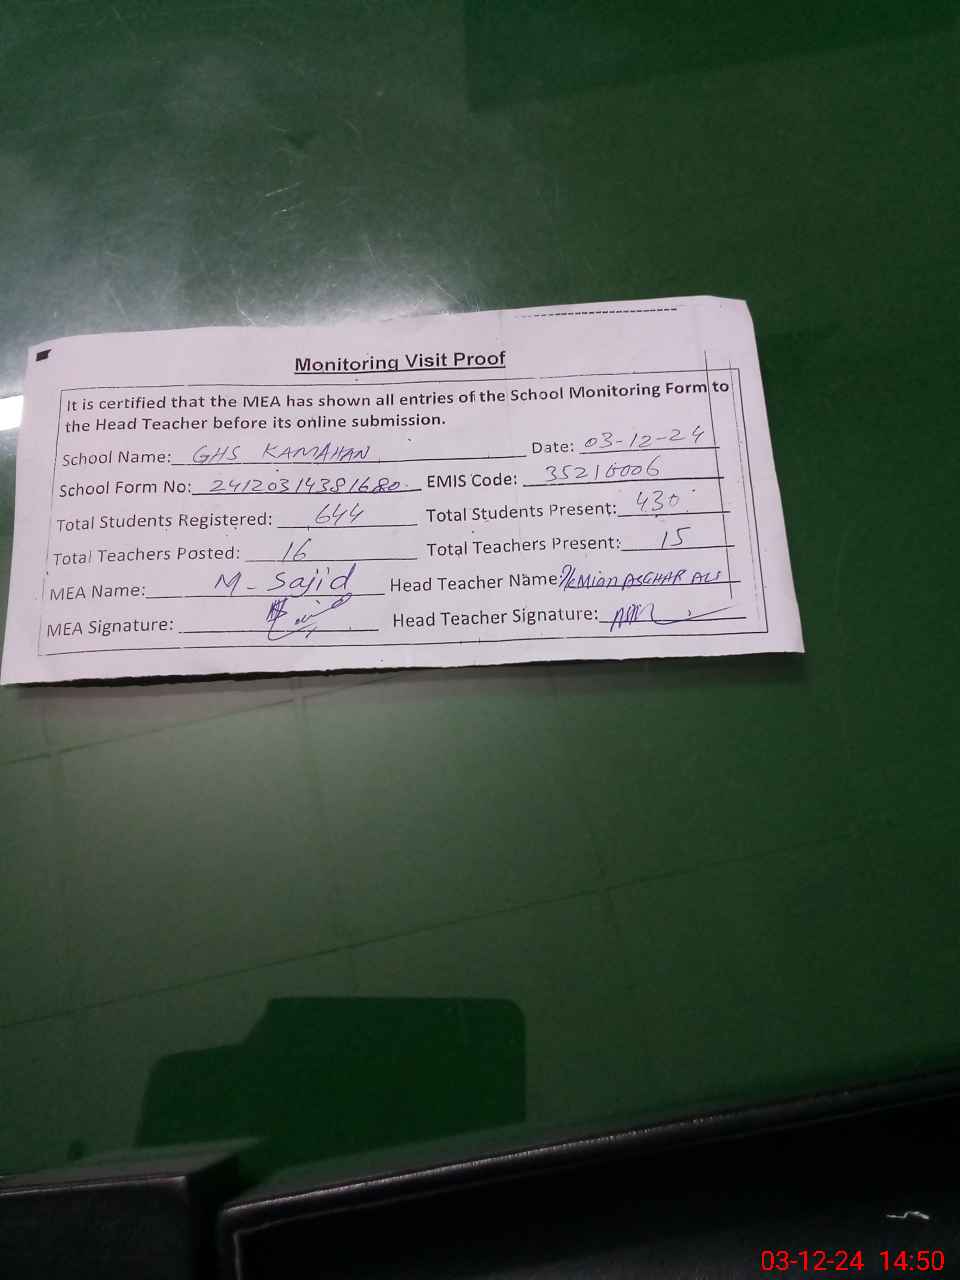 Monitoring Visit Proof
It is certified that the MEA has shown all entries of the School Monitoring Form to
the Head Teacher before its online submission.
School Name: GHS KAMAHAN Date: 03-12-24
School Form No: 24120314381680. EMIS Code: 35210006
Total Students Registered: 644 Total Students Present: 430
Total Teachers Posted: 16 Total Teachers Present: 15
MEA Name: M-Sajid Head Teacher Name: Mian ASGHAR ALI
MEA Signature: Head Teacher Signature:
03-12-24 14:50